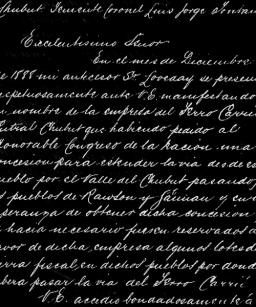 Chubut Teniente Coronel Luis Jorge Fontan
Excelentisimo Señor
En el mes de Diciembre
de 1888 mi antecesor Sr. Loveday se presen
respetuosamente ante V.E. manifestando
en nombre de la empresa del Ferro Carri
Central Chubut que habiendo pedido al
Honorable Congreso de la Nacion una
concesion para estender la via desde es
pueblo por el Valle del Chubut pasando
los pueblos de Rawson y Gaiman y en
esperanza de obtener dicha concesion
hacia necesario fueran reservados a
favor de dicha empresa algunos lotes de
tierra fiscal en dichos pueblos por dond
debera pasar la via del Ferro Carri
V.E. accedio bondadosamente á